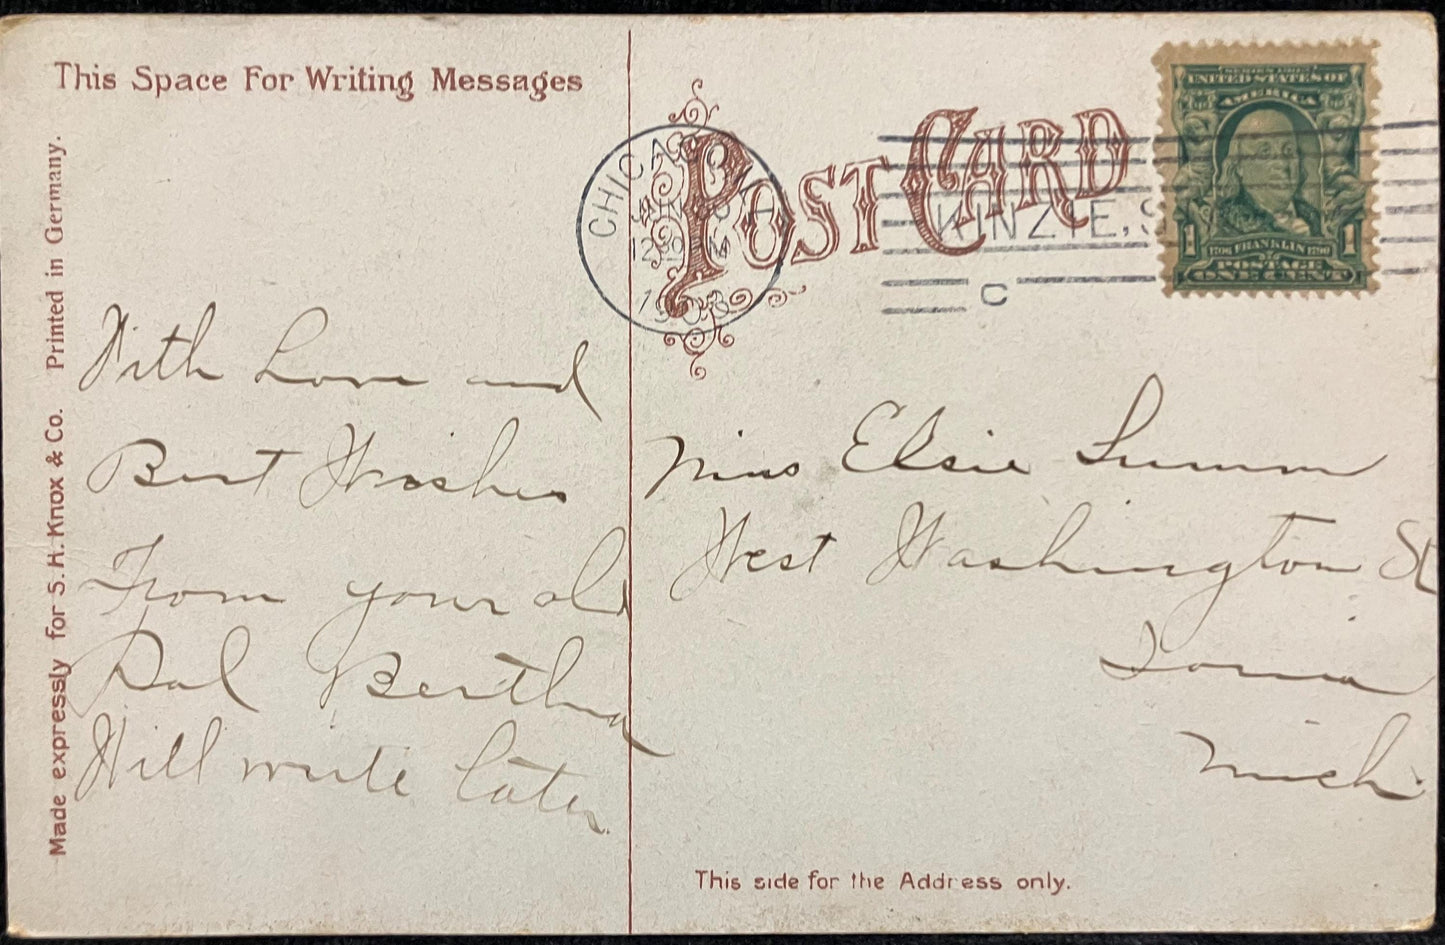 This Space For Writing Messages
Made expressly for S. H. Knox & Co. Printed in Germany.
With Love and
Best Wishes
From your old
Pal Bertha
Will write later
POST CARD
CHICAGO
1908
KINZIE, S
C
SERIES 1902
UNITED STATES OF
AMERICA
1 1706 FRANKLIN 1790 1
POSTAGE
ONE CENT
Miss Elsie Lumm
West Washington St
Ionia
Mich.
This side for the Address only.